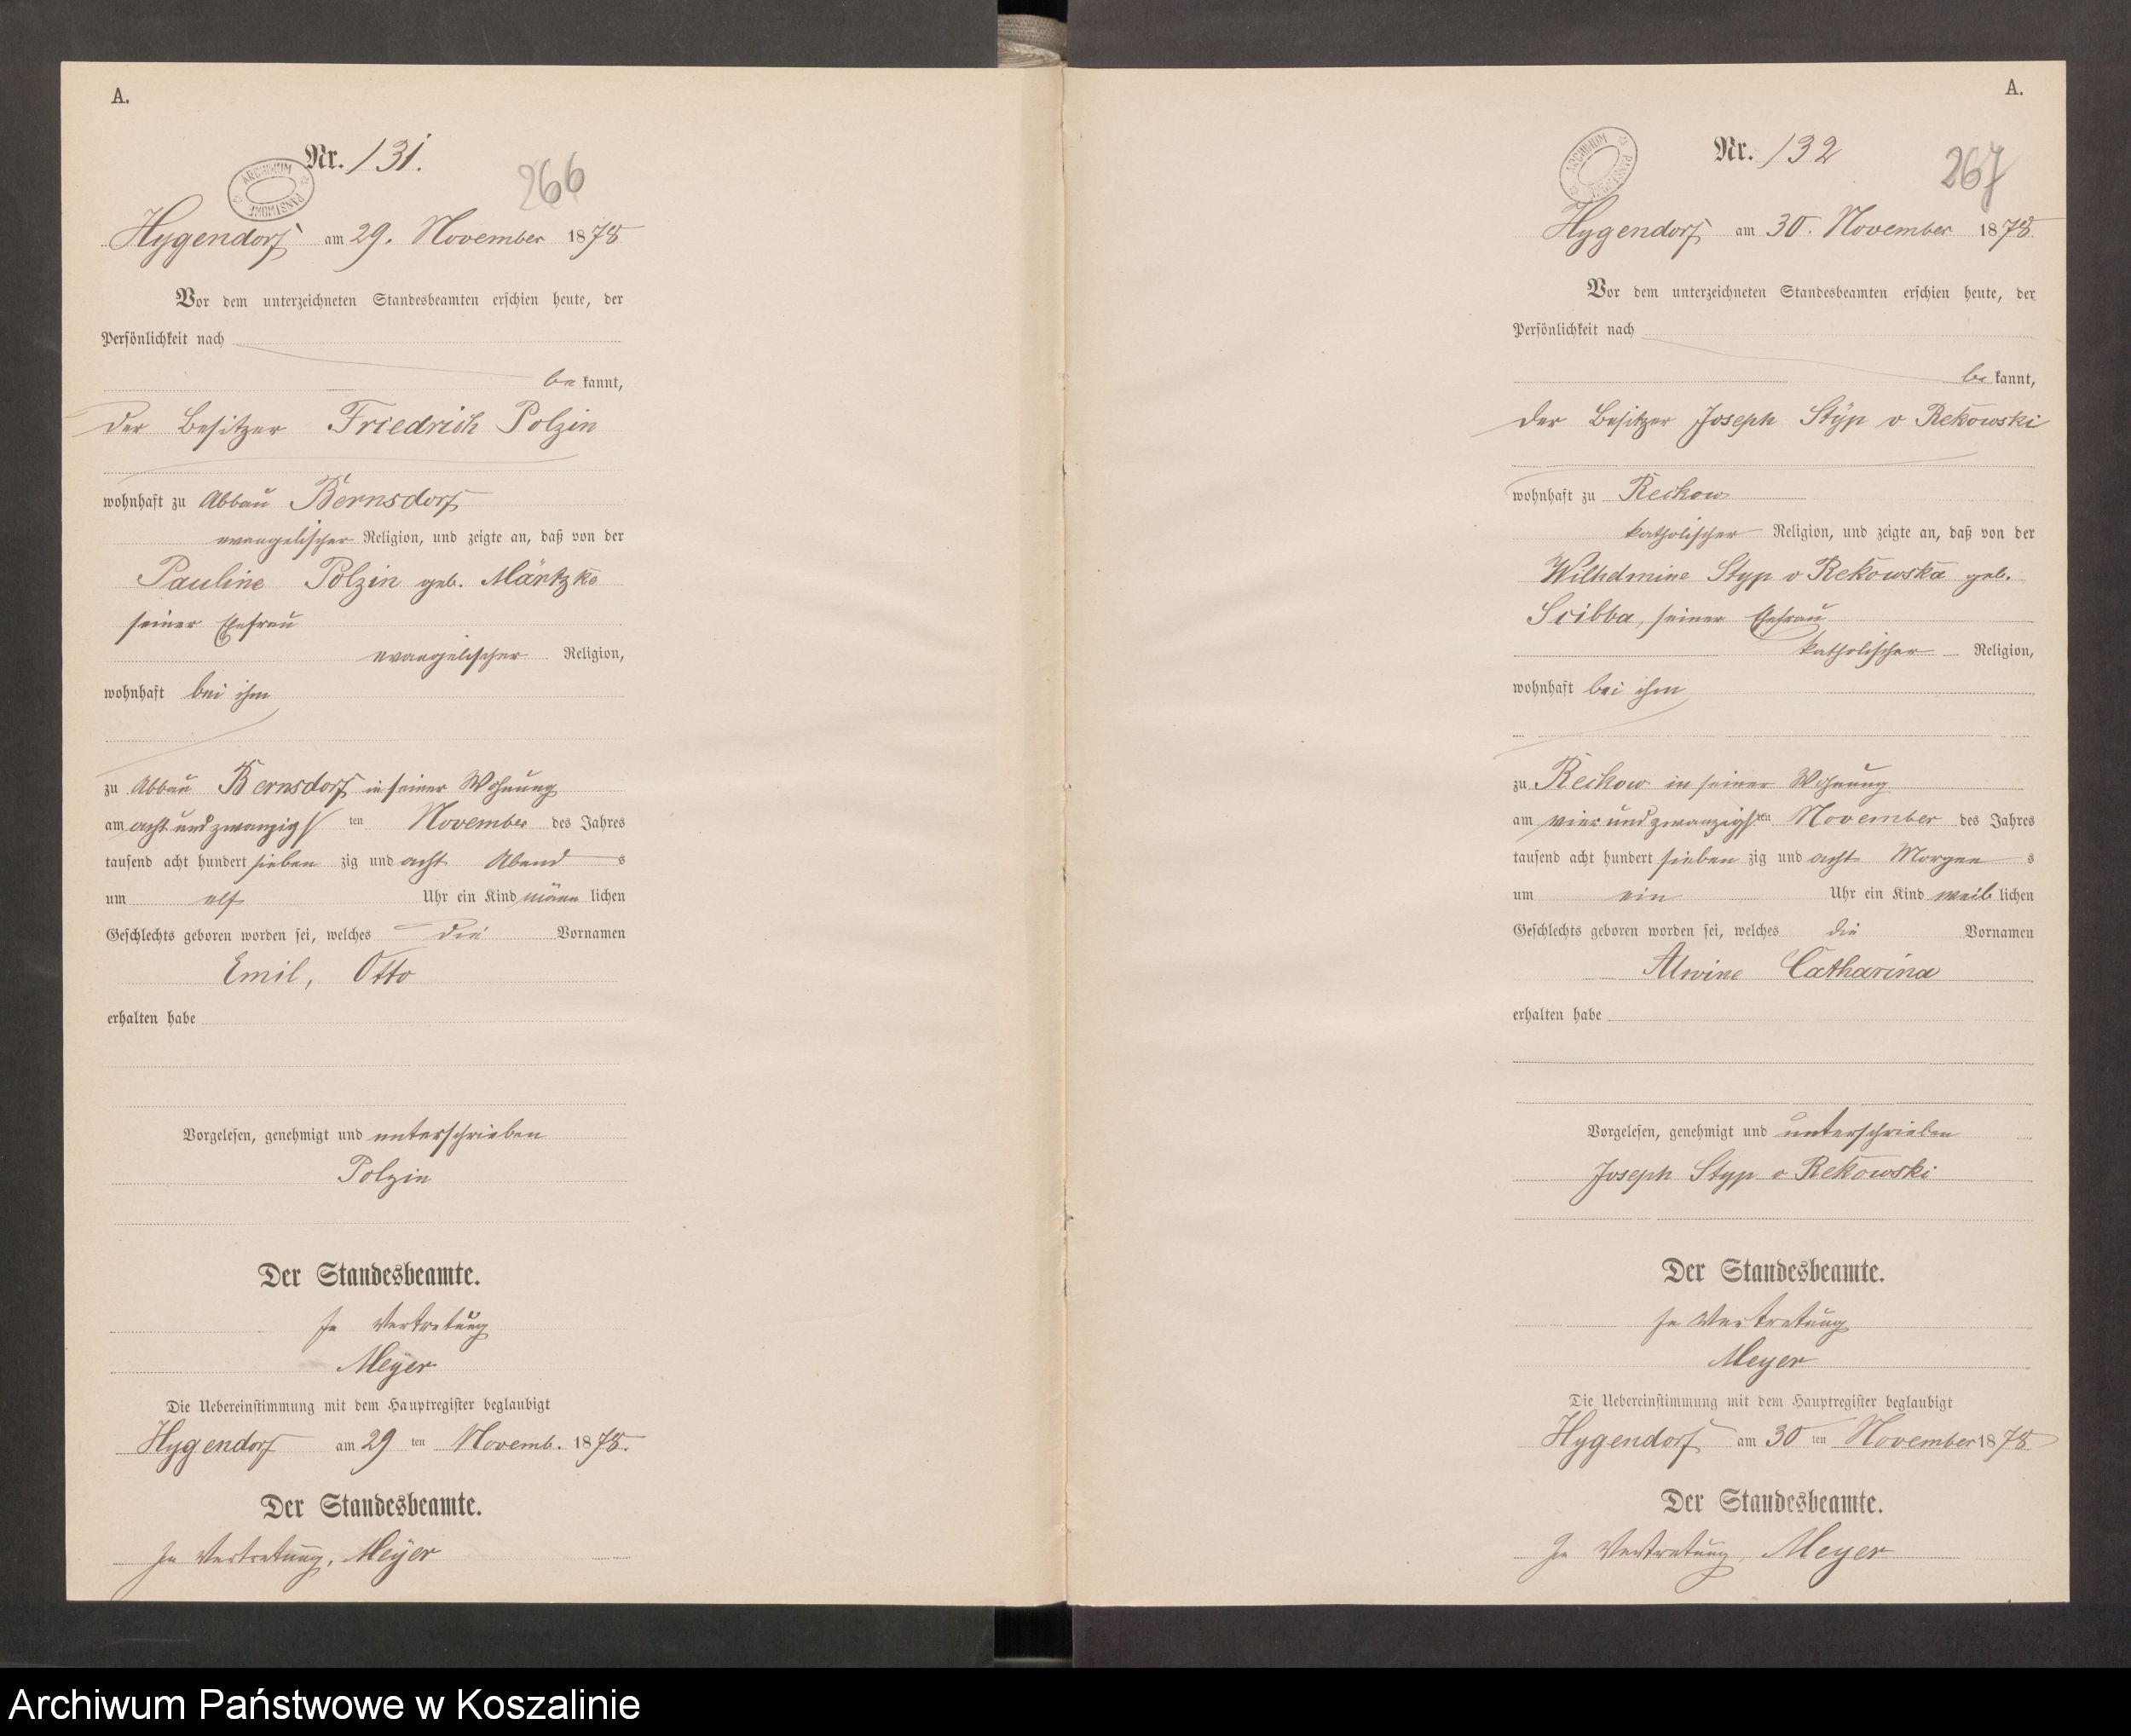 A.
Nr. 131.
266
ARCHIWUM PAŃSTWOWE
Hygendorf am 29. November 1878
Vor dem unterzeichneten Standesbeamten erschien heute, der
Persönlichkeit nach
be kannt,
der Besitzer Friedrich Polzin
wohnhaft zu Abbau Bernsdorf
evangelischer Religion, und zeigte an, daß von der
Pauline Polzin geb. Mäntzke
seiner Ehefrau
evangelischer Religion,
wohnhaft bei ihm
zu Abbau Bernsdorf in seiner Wohnung
am acht und zwanzigs ten November des Jahres
tausend acht hundert sieben zig und acht Abend s
um elf Uhr ein Kind männ lichen
Geschlechts geboren worden sei, welches die Vornamen
Emil, Otto
erhalten habe
Vorgelesen, genehmigt und unterschrieben
Polzin
Der Standesbeamte.
In Vertretung
Meyer
Die Uebereinstimmung mit dem Hauptregister beglaubigt
Hygendorf am 29 ten Novemb. 1878.
Der Standesbeamte.
In Vertretung, Meyer
A.
Nr. 132
267
ARCHIWUM PAŃSTWOWE
Hygendorf am 30. November 1878
Vor dem unterzeichneten Standesbeamten erschien heute, der
Persönlichkeit nach
be kannt,
der Besitzer Joseph Styp v Rekowski
wohnhaft zu Reckow
katholischer Religion, und zeigte an, daß von der
Wilhelmine Styp v Rekowska geb.
Scibba, seiner Ehefrau
katholischer Religion,
wohnhaft bei ihm
zu Reckow in seiner Wohnung
am vier und zwanzigs ten November des Jahres
tausend acht hundert sieben zig und acht Morgen s
um ein Uhr ein Kind weib lichen
Geschlechts geboren worden sei, welches die Vornamen
Alwine Catharina
erhalten habe
Vorgelesen, genehmigt und unterschrieben
Joseph Styp v Rekowski
Der Standesbeamte.
In Vertretung
Meyer
Die Uebereinstimmung mit dem Hauptregister beglaubigt
Hygendorf am 30 ten November 1878
Der Standesbeamte.
In Vertretung, Meyer
Archiwum Państwowe w Koszalinie